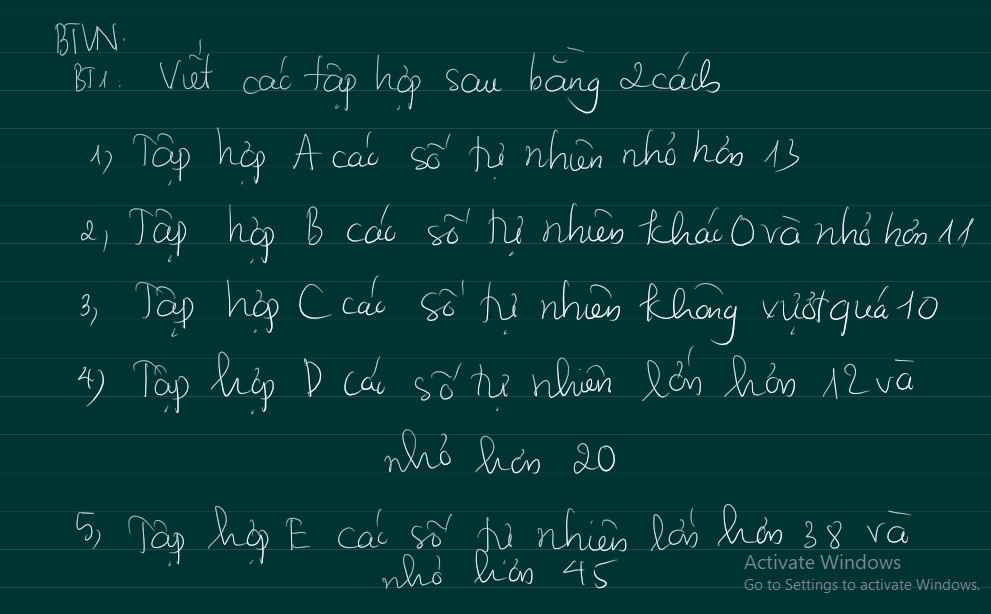 BTVN.
BT1: Viết các tập hợp sau bằng 2 cách
1, Tập hợp A các số tự nhiên nhỏ hơn 13
2, Tập hợp B các số tự nhiên khác 0 và nhỏ hơn 11
3, Tập hợp C các số tự nhiên không vượt quá 10
4) Tập hợp D các số tự nhiên lớn hơn 12 và
nhỏ hơn 20
5, Tập hợp E các số tự nhiên lớn hơn 38 và
nhỏ hơn 45
Activate Windows
Go to Settings to activate Windows.